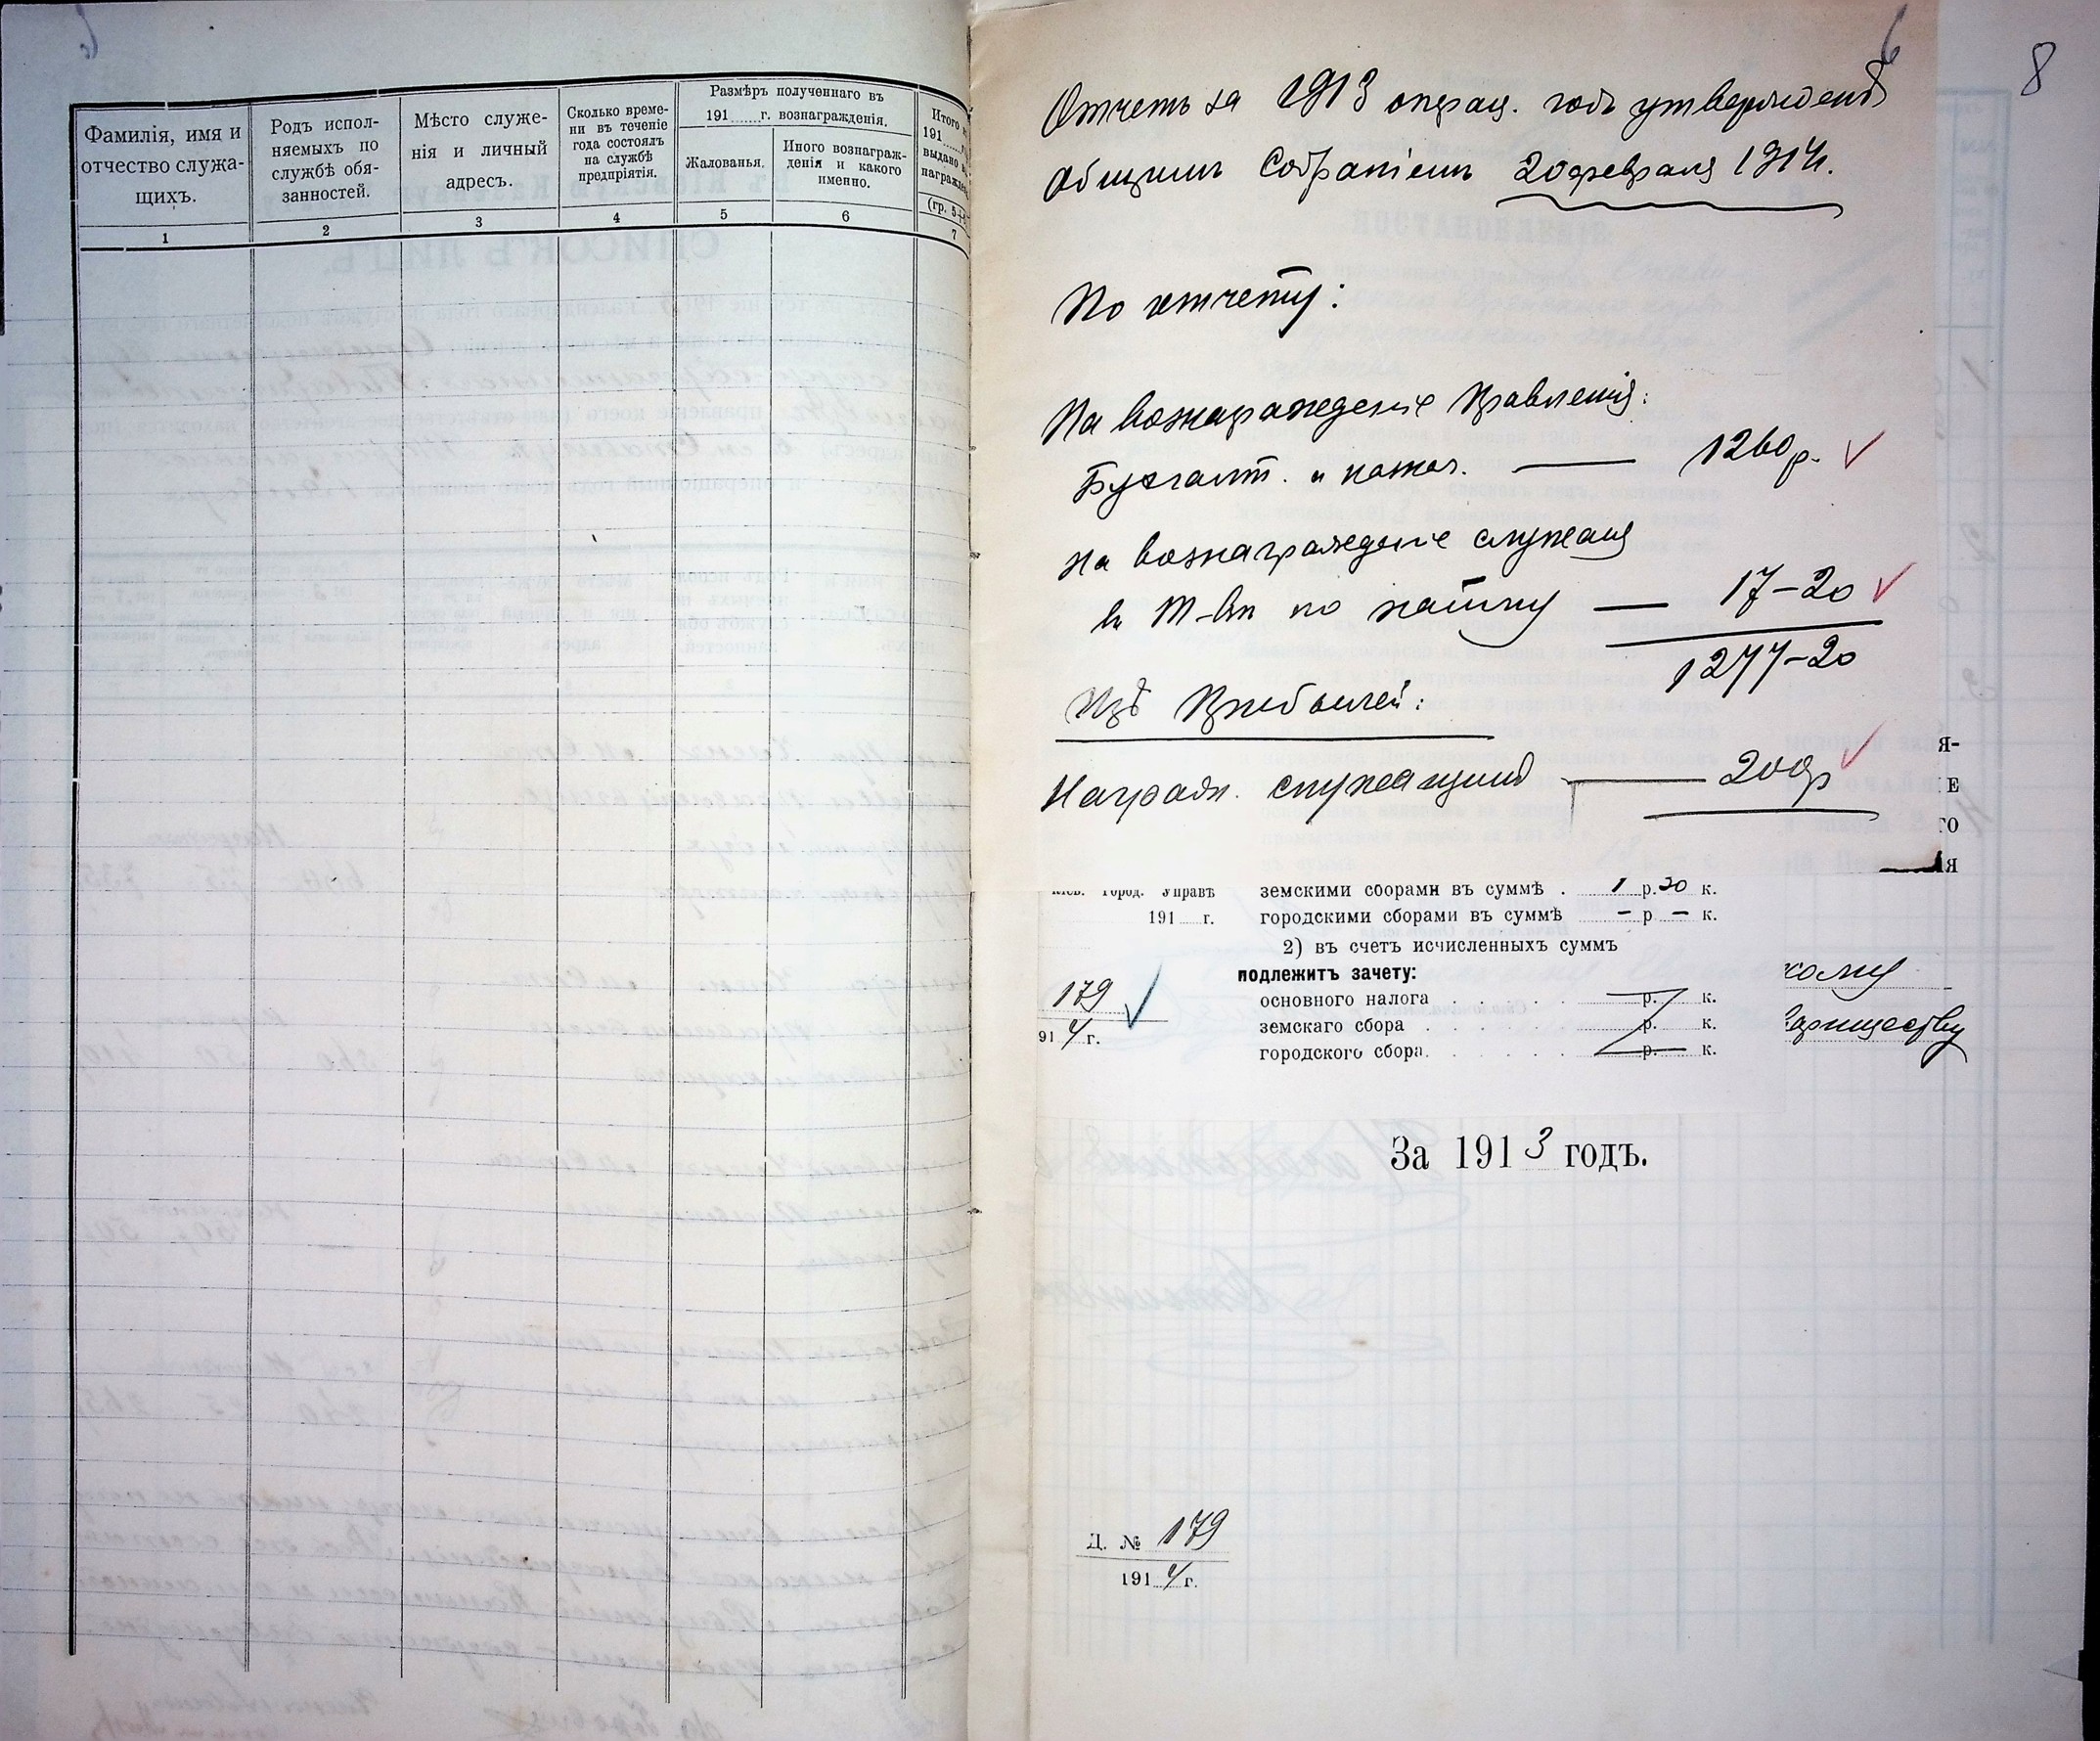 Фамилія, имя и
отчество служа-
щихъ.
1
Родъ испол-
няемыхъ по
службѣ обя-
занностей.
2
Мѣсто служе-
нія и личный
адресъ.
3
Сколько време-
ни въ теченіе
года состоялъ
на службѣ
предпріятія.
4
Размѣръ полученнаго въ
191......г. вознагражденія.
Жалованья.
5
Иного вознаграж-
денія и какого
именно.
6
Итого
191
выдано
награжде
(гр. 5+
7
6
8
Отчетъ за 1913 операц. годъ утвержденъ
Общимъ Собраніемъ 20 февраля 1914.
По отчету:
На вознагражденіе Правленія:
Бухгалт. и — 1260 р.
на вознагражденіе служащ
в Т-вѣ по найму — 17-20
1277-20
Изъ Прибылей:
Наградн. служащимъ — 200 р
Я-
Е
ГО
ІЯ
Город. Управѣ
191......г.
земскими сборами въ суммѣ . 1 р. 20 к.
городскими сборами въ суммѣ - р - к.
2) въ счетъ исчисленныхъ суммъ
подлежитъ зачету:
основного налога . . . . . р. к.
земскаго сбора . . . . . . р. к.
городского сбора. . . . . . р. к.
179
91 4 г.
кому
вариществу
За 1913 годъ.
Д. № 179
191 4 г.